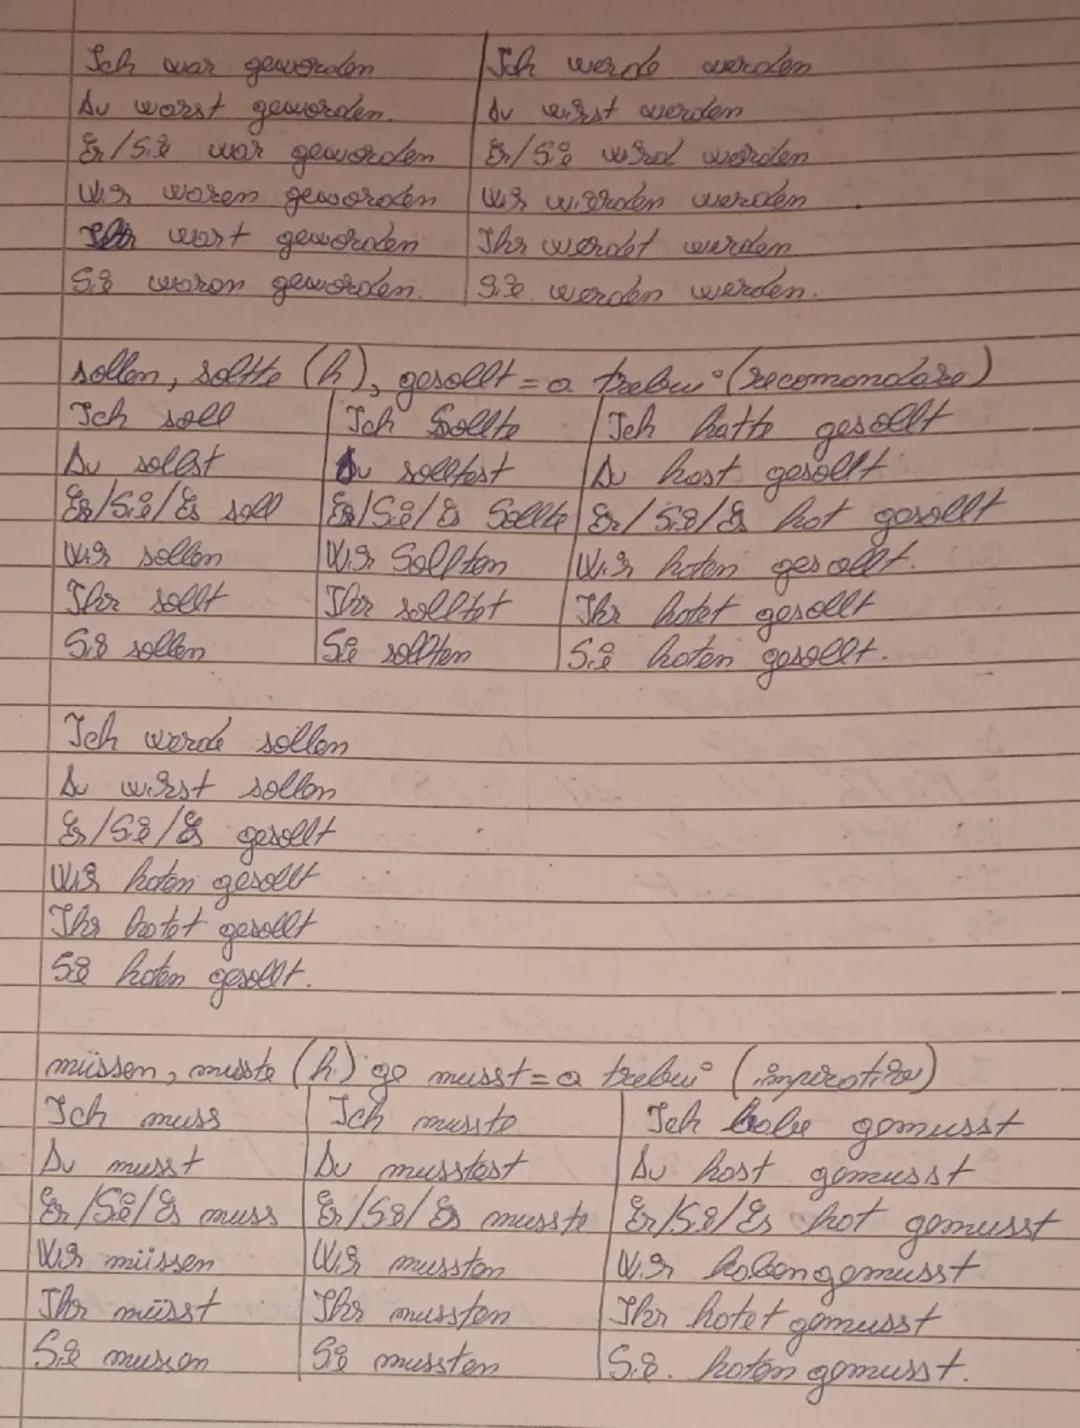 Ich war geworden | Ich werde werden
Du warst geworden. | Du wirst werden
Er/Sie war geworden | Er/Sie wird werden
Wir waren geworden | Wir wierden werden
Ihr wart geworden | Ihr werdet werden
Sie waren geworden. | Sie werden werden.
sollen, sollte (h), gesollt = a trebui (recomandare)
Ich soll | Ich Sollte | Ich hatte gesollt
Du sollst | Du solltest | Du hast gesollt
Er/Sie/Es soll | Er/Sie/Es Sollte | Er/Sie/Es hat gesollt
Wir sollen | Wir Sollten | Wir haten gesollt.
Ihr sollt | Ihr solltet | Ihr hatet gesollt
Sie sollen | Sie sollten | Sie haten gesollt.
Ich werde sollen
Du wirst sollen
Er/Sie/Es gesollt
Wir haten gesollt
Ihr hatet gesollt
Sie haten gesollt.
müssen, musste (h) ge musst = a trebui (imperativ)
Ich muss | Ich musste | Ich habe gemusst
Du musst | Du musstest | Du hast gemusst
Er/Sie/Es muss | Er/Sie/Es musste | Er/Sie/Es hat gemusst
Wir müssen | Wir mussten | Wir haben gemusst
Ihr müsst | Ihr mussten | Ihr hatet gemusst
Sie mussen | Sie mussten | Sie. haten gemusst.